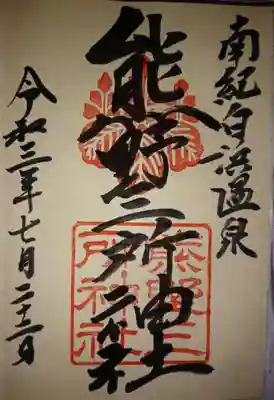 南紀白浜温泉
熊野三所神社
熊野三所神社
令和三年七月二十二日